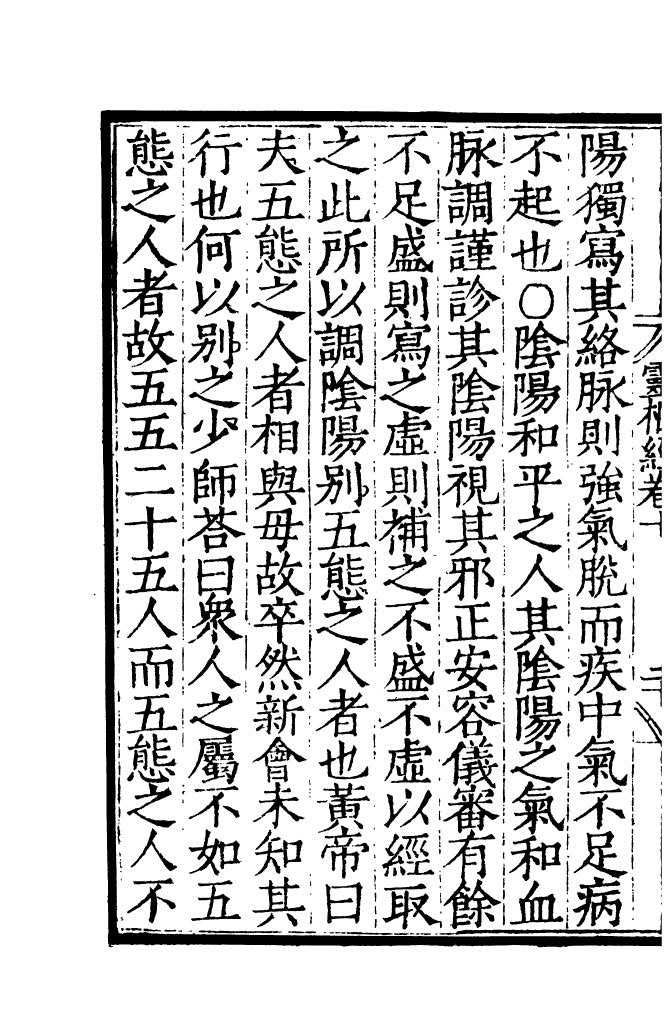 陽獨寫其絡脉則強氣脫而疾中氣不足病
不起也〇陰陽和平之人其陰陽之氣和血
脉調謹診其陰陽視其邪正安容儀審有餘
不足盛則寫之虛則補之不盛不虛以經取
之此所以調陰陽別五態之人者也黃帝曰
夫五態之人者相與毋故卒然新會未知其
行也何以別之少師荅曰衆人之屬不如五
態之人者故五五二十五人而五態之人不